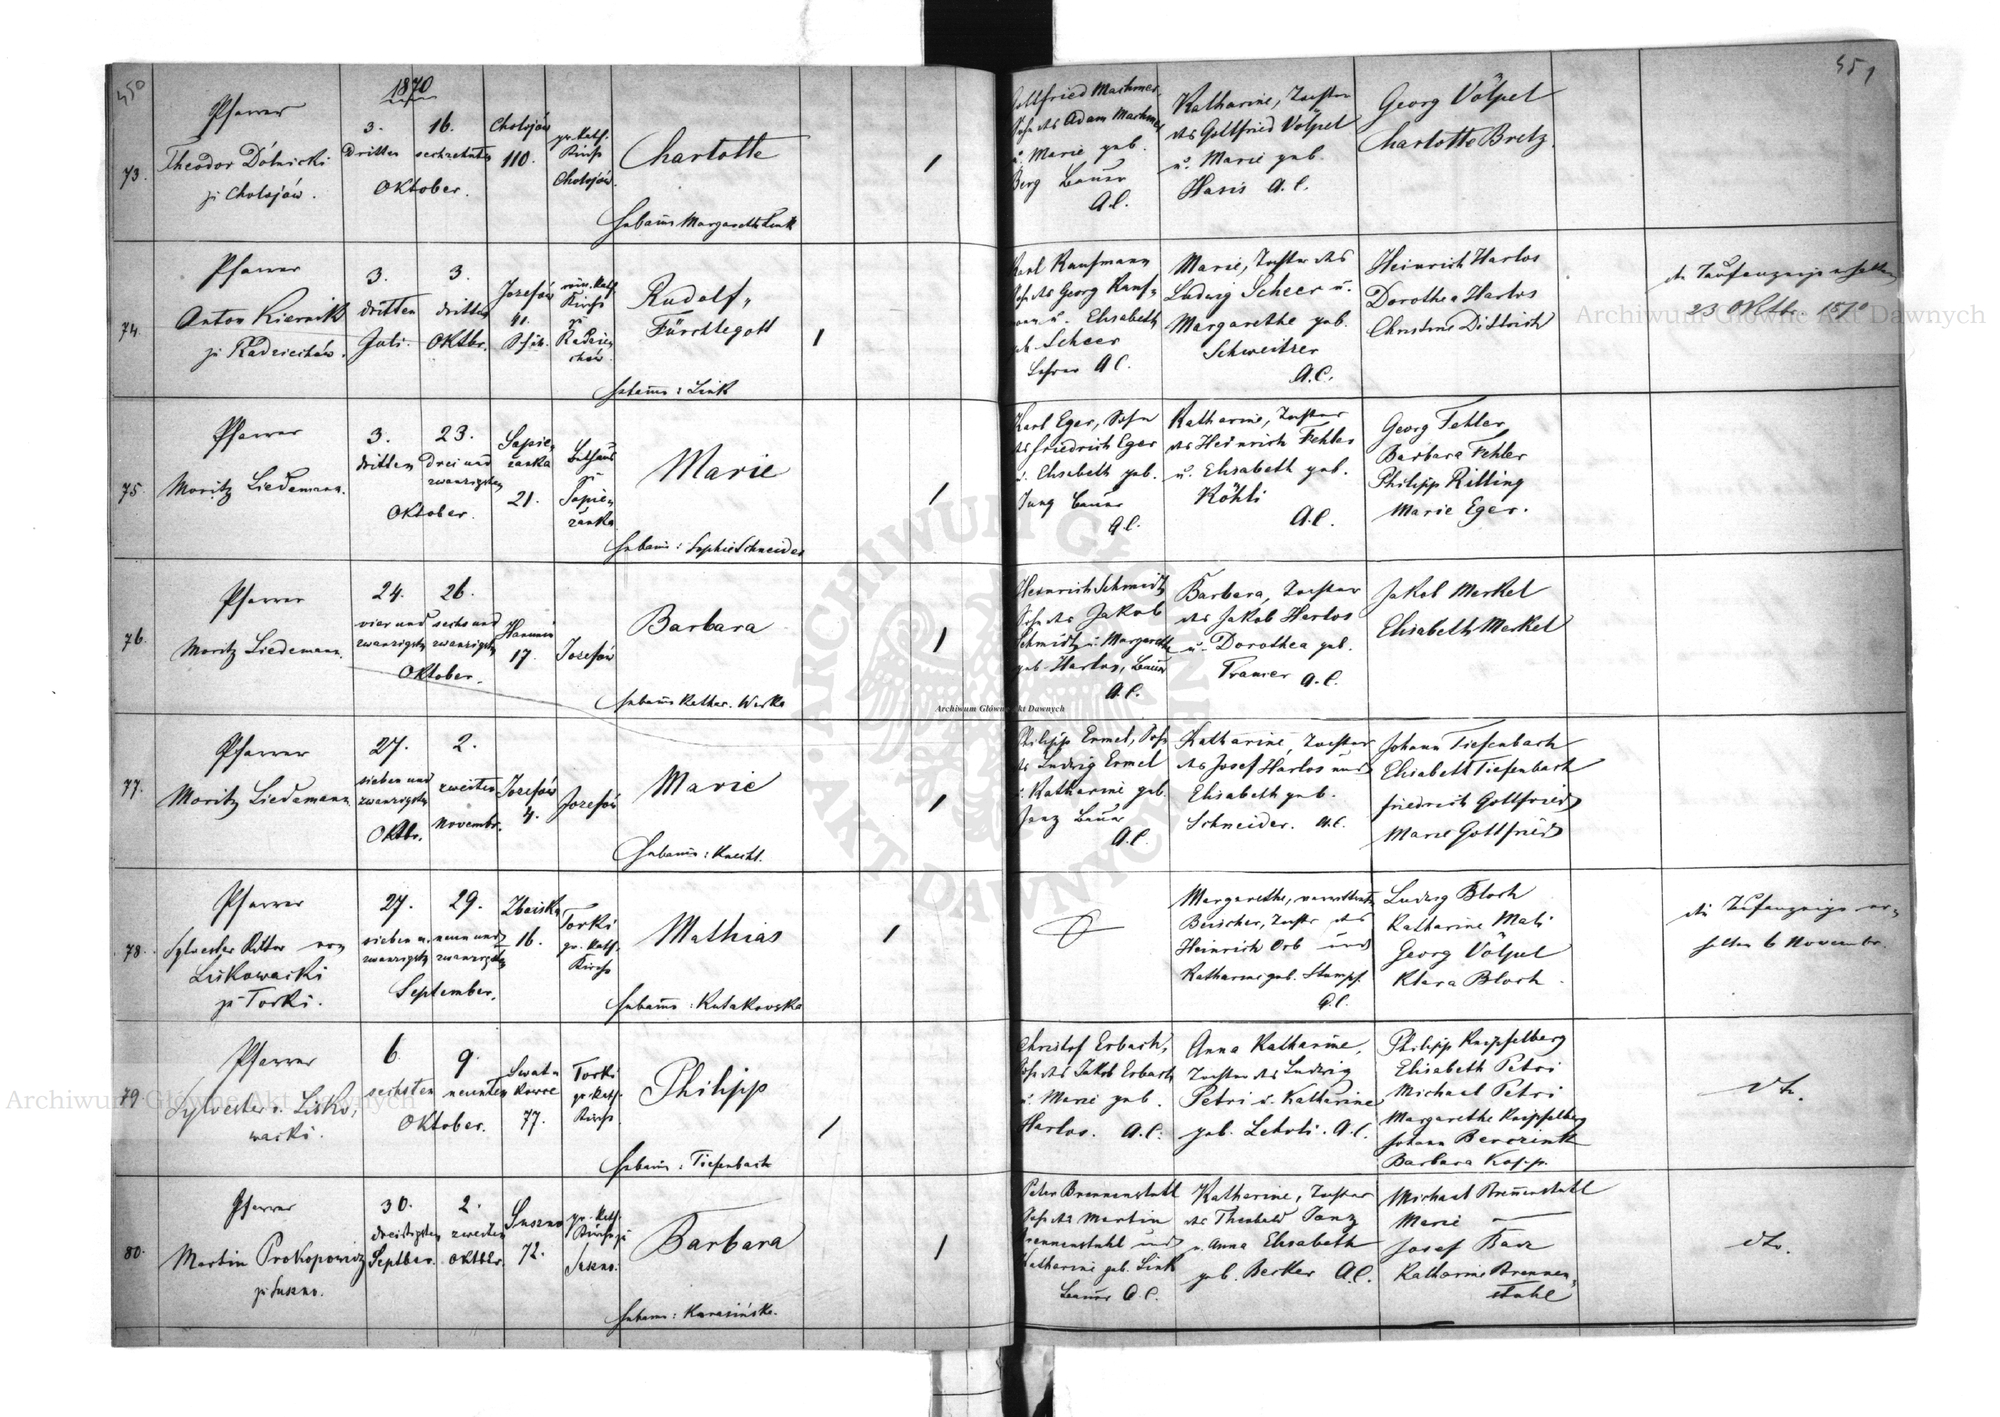 450
1870
451
73.
Pfarrer
Theodor Dólnicki
zu Cholojów.
3. 16.
dritten sechzehnten
Oktober.
Cholojów
110.
gr. kath.
Kirche
Cholojów.
Charlotte
Hebamme Margareth Link
Gottfried Machmer,
Sohn des Adam Machmer
u. Marie geb.
Berg Bauer
A.C.
Katharine, Tochter
des Gottfried Völpel
u. Marie geb.
A.C.
Georg Völpel
Charlotte Bretz.
74.
Pfarrer
Anton Kiernik
zu Radziechów.
3. 3.
dritten dritten
Juli. Oktbr.
Józefów
41.
röm. kath.
Kirche
zu
Radzie-
chów
Rudolf,
Fürchtegott
Hebamme: Link
Karl Kaufmann
Sohn des Georg Kauf-
mann u. Elisabeth
geb. Scheer
Lehrer A.C.
Marie, Tochter des
Ludwig Scheer u.
Margarethe geb.
Schweitzer
A.C.
Heinrich Harlos
Dorothea Harlos
Christine Dittrich
die Taufanzeige erhalten
23 Oktbr. 1870
75.
Pfarrer
Moritz Liedemann.
3. 23.
dritten drei und
zwanzigsten
Oktober.
Sapie-
zanka
21.
Bethaus
zu
Sapie-
zanka
Marie
Hebamme: Sophie Schneider
Karl Eger, Sohn
des Friedrich Eger
u. Elisabeth geb.
Jung Bauer
A.C.
Katharine, Tochter
des Heinrich Fehler
u. Elisabeth geb.
Köhli
A.C.
Georg Fehler
Barbara Fehler
Philipp Rilling
Marie Eger.
76.
Pfarrer
Moritz Liedemann.
24. 26.
vier und sechs und
zwanzigsten zwanzigsten
Oktober.
Hanunin
17.
Jozefów
Barbara
Hebamme Kathar. Werka
Heinrich Schmidt,
Sohn des Jakob
Schmidt u. Margarethe
geb. Harlos, Bauer
A.C.
Barbara, Tochter
des Jakob Harlos
u. Dorothea geb.
Tramer A.C.
Jakob Merkel
Elisabeth Merkel
77.
Pfarrer
Moritz Liedemann
27. 2.
sieben und zweiten
zwanzigsten
Oktbr. Novembr.
Jozefów
4.
Jozefów
Marie
Hebamme: Knecht.
Philipp Ermel, Sohn
des Ludwig Ermel
u. Katharine geb.
Janz Bauer
A.C.
Katharine, Tochter
des Josef Harlos und
Elisabeth geb.
Schneider. A.C.
Johann Tiefenbach
Elisabeth Tiefenbach
Friedrich Gottfried
Marie Gottfried
78.
Pfarrer
Sylvester Ritter von
Liskowacki
zu Torki.
27. 29.
sieben u. neun und
zwanzigsten zwanzigsten
September.
16.
Torki
gr. kath.
Kirche
Mathias
Hebamme: Kulakowska
Margarethe, verwittwete
Heinrich Orb und
Katharine geb. Stumpf.
A.C.
Ludwig Bloch
Katharine Mali
Georg Völpel
Klara Bloch.
die Taufanzeige er-
halten 6 Novembr.
79.
Pfarrer
Sylvester v. Lisko-
wacki.
6. 9.
sechsten neunten
Oktober.
77.
Torki
gr. kath.
Kirche
Philipp
Hebamme: Tiefenbach
Christof Erbach,
Sohn des Jakob Erbach
u. Marie geb.
Harlos. A.C.
Anna Katharine,
Tochter des Ludwig
Petri u. Katharine
A.C.
Philipp Knipfelberg
Elisabeth Petri
Michael Petri
Margarethe Knipfelberg
Johann
Barbara Kopp.
dto.
80.
Pfarrer
Martin Prokopowicz
zu Suszno.
30. 2.
dreißigsten zweiten
Septber. Oktbr.
Suszno
72.
gr. kath.
Kirche zu
Suszno.
Barbara
Hebamme: Karasińska.
Peter Brennenstuhl
Sohn des Martin
Brennenstuhl und
Katharine geb. Link
Bauer A.C.
Katharine, Tochter
des Theobald Janz
u. Anna Elisabeth
geb. Berker A.C.
Michael Brennenstuhl
Marie
Josef
Katharine Brennen-
stuhl
dto.
Archiwum Główne Akt Dawnych
Archiwum Główne Akt Dawnych
Archiwum Główne Akt Dawnych
ARCHIWUM GŁÓWNE AKT DAWNYCH